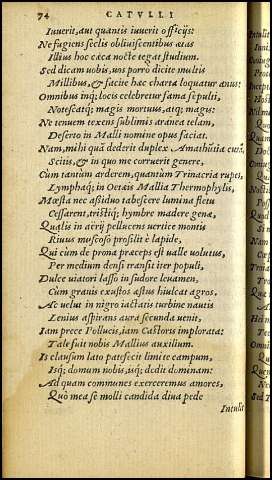 74 CATVLLI
Iuuerit, aut quantis iuuerit officijs:
Ne fugiens seclis obliuiscentibus ætas
Illius hoc cæca nocte tegat studium.
Sed dicam uobis, uos porro dicite multis
Millibus, & facite hæc charta loquatur anus:
Omnibus inq; locis celebretur fama sepulti,
Notescatq; magis mortuus, atq; magis:
Ne tenuem texens sublimis aranea telam,
Deserto in Malli nomine opus faciat.
Nam, mihi quā dederit duplex Amathūtia curā,
Scitis, & in quo me corruerit genere,
Cùm tantùm arderem, quantùm Trinacria rupes,
Lymphaq; in Oetæis Mallia Thermophylis,
Mœsta nec assiduo tabescere lumina fletu
Cessarent, tristiq; hymbre madere genæ,
Qualis in aërij pellucens uertice montis
Riuus muscoso prosilit è lapide,
Qui cùm de prona præceps est ualle uolutus,
Per medium densi transit iter populi,
Dulce uiatori lasso in sudore leuamen,
Cùm grauis exustos æstus hiulcat agros,
Ac uelut in nigro iactatis turbine nautis
Lenius aspirans aura secunda uenit,
Iam prece Pollucis, iam Castoris implorata:
Tale fuit nobis Mallius auxilium.
Is clausum lato patefecit limite campum,
Isq; domum nobis, isq; dedit dominam:
Ad quam communes exerceremus amores,
Quò mea se molli candida diua pede
Intulit